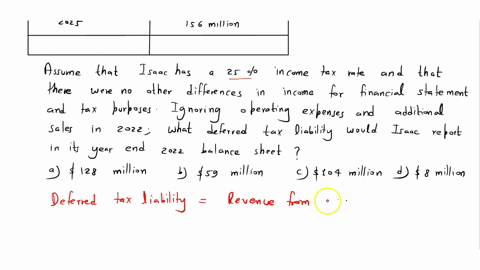 2025 156 million
Assume that Isaac has a 25 % income tax rate and that
there were no other differences in income for financial statement
and tax purposes. Ignoring operating expenses and additional
sales in 2022, what deferred tax liability would Isaac report
in its year end 2022 balance sheet ?
a) $ 128 million b) $59 million c) $104 million d) $ 8 million
Deferred tax liability = Revenue from